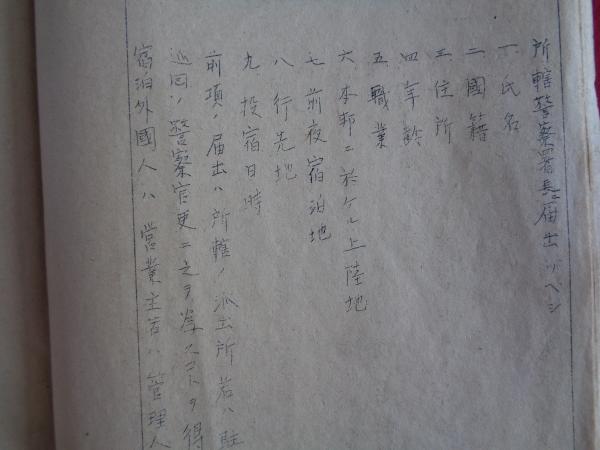 所轄警察署長ニ届出ヅベシ
一、氏名
二、國籍
三、住所
四、年齢
五、職業
六、本邦ニ於ケル上陸地
七、前夜宿泊地
八、行先地
九、投宿日時
前項ノ届出ハ所轄ノ派出所若ハ駐
巡回ノ警察官吏ニ之ヲ為スコトヲ得
宿泊外國人ハ営業主若ハ管理人